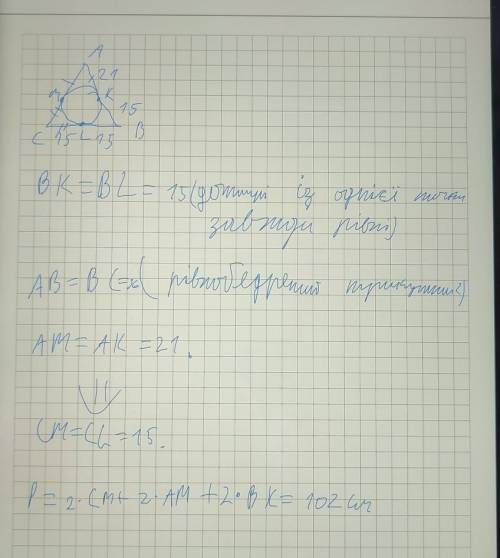 A
21
M K
15
C 15 L 15 B
BK = BL = 15 (дотичні із однієї точки
завжди рівні)
AB = BC = x ( рівнобедрений трикутник?)
AM = AK = 21.
CM = CL = 15.
P = 2 · CM + 2 · AM + 2 · BK = 102 см